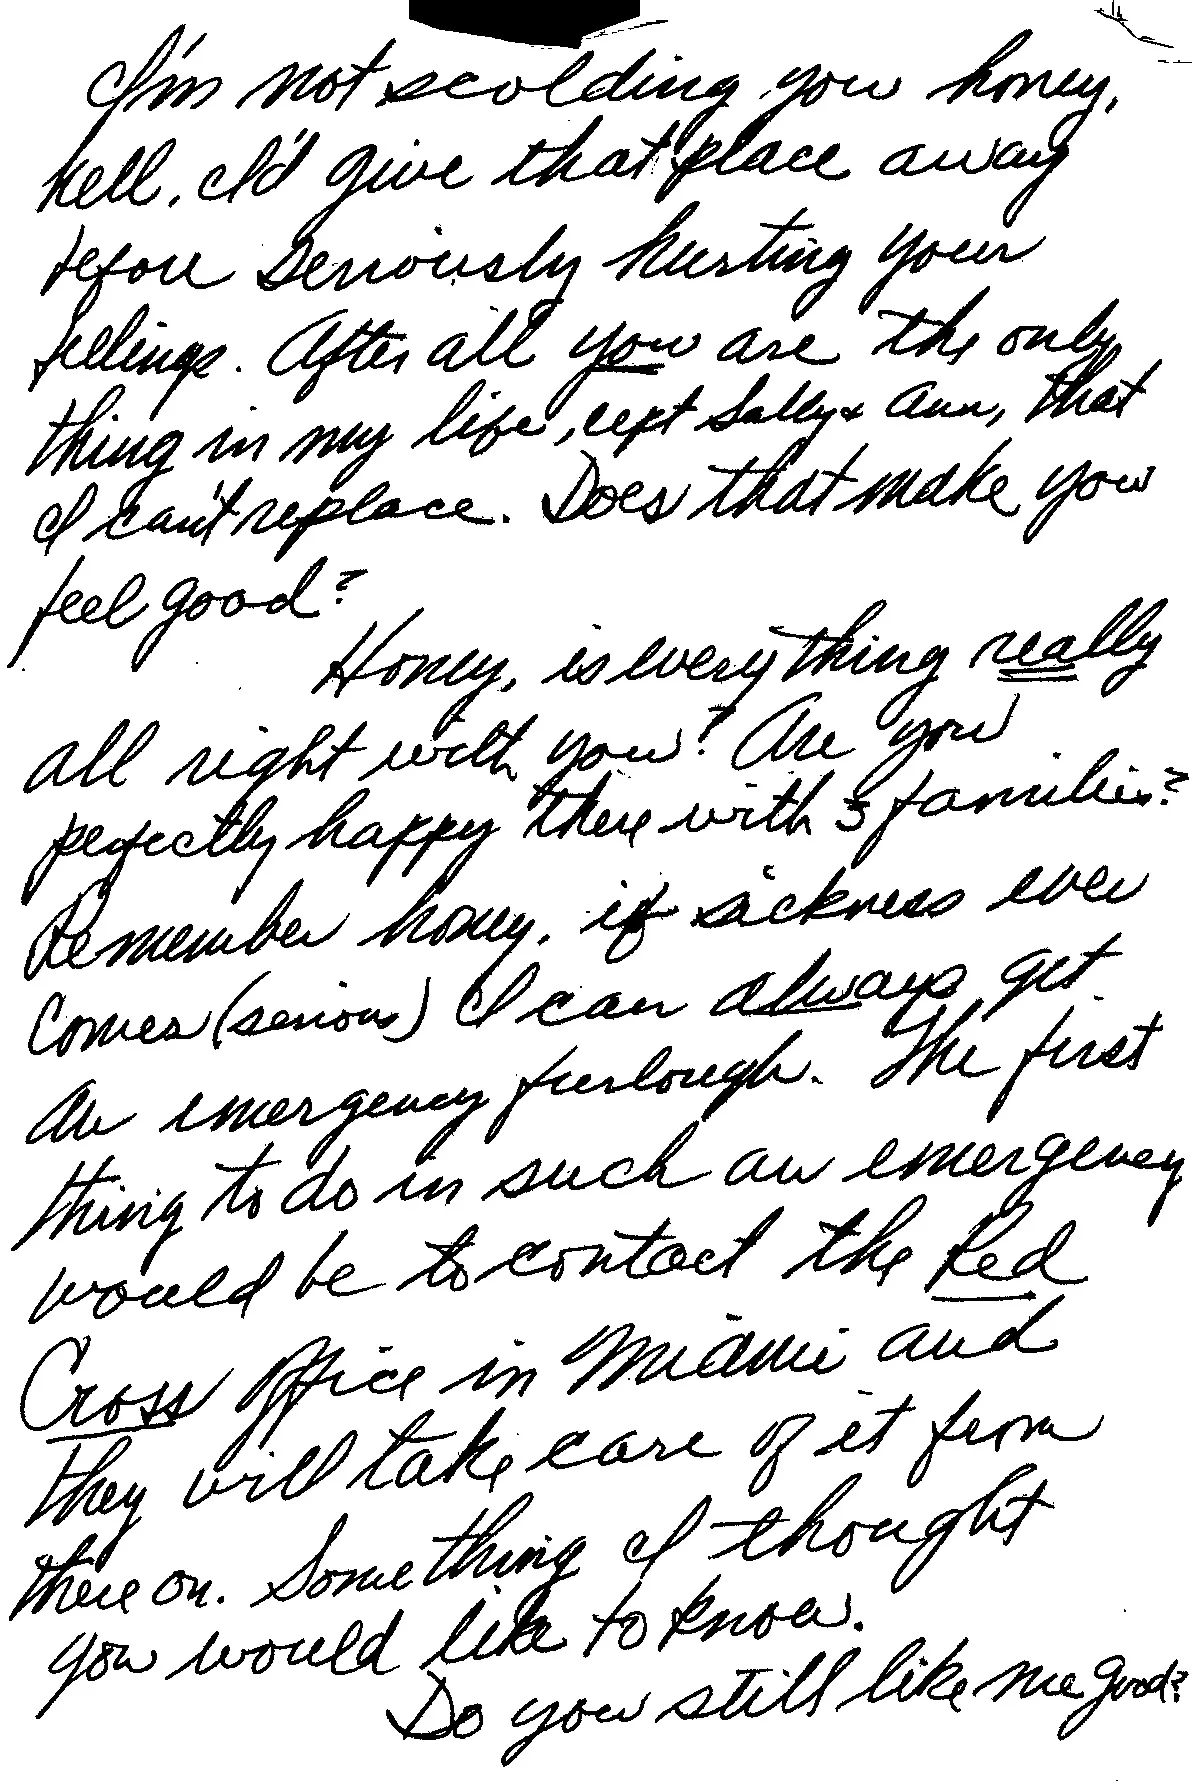 I'm not scolding you honey,
hell, I'd give that place away
before seriously hurting your
feelings. After all you are the only
thing in my life, cept Sally & Ann, that
I can't replace. Does that make you
feel good?
Honey, is everything really
all right with you? Are you
perfectly happy there with 3 families?
Remember honey, if sickness ever
comes (serious) I can always get
an emergency furlough. The first
thing to do in such an emergency
would be to contact the Red
Cross office in Miami and
they will take care of it from
there on. Something I thought
you would like to know.
Do you still like me good?